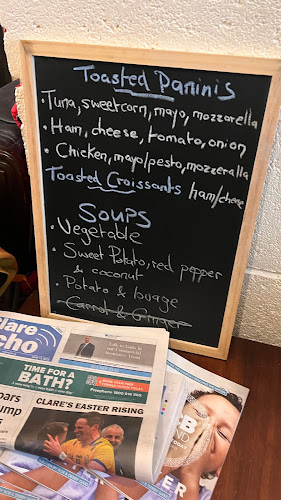 Toasted Paninis
• Tuna, sweetcorn, mayo, mozzarella
• Ham, cheese, tomato, onion
• Chicken, mayo/pesto, mozzeralla
Toasted Croissants ham/cheese
SOUPS
• Vegetable
• Sweet Potato, red pepper
& coconut
• Potato & lovage
Carrot & Ginger
lare
cho
TIME FOR A
BATH?
CLARE'S EASTER RISING
pars
ump
s